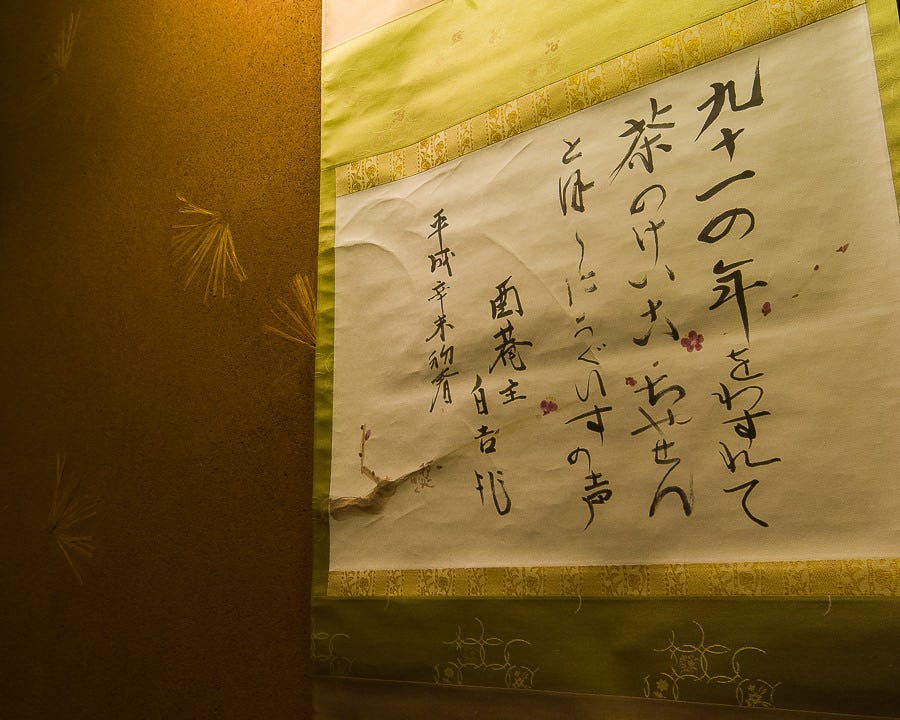 九十一の年をわすれて
茶のけいこ ちゃせん
とほ〱にうぐいすの声
酉菴主
自吉作
平成辛未初春